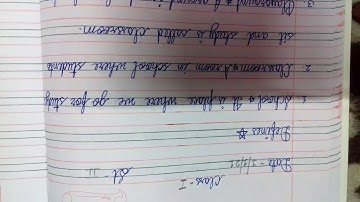 Class - I
Date - 1/3/21
Defines
1. School → It is place where we go for study
2. Classroom → room in school where students
sit and study is called classroom.
3. Playground → A ground